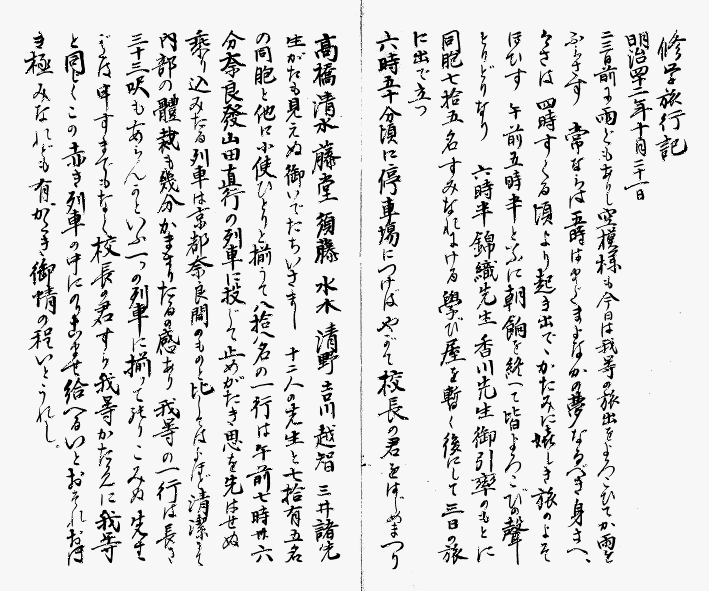 修学旅行記
明治四十二年十月三十一日
二三日前より雨ともありし空模様も今日は我等の旅出をよろこびてか雨を
ふらさす 常ならは五時はまだまよなかの夢なるべき身さへ、
今日は 四時すぐる頃より起き出でゝかたみに嬉しき旅のよそ
ほひす 午前五時半といふに朝餉を終へて皆よろこびの聲
とりどりなり 六時半錦織先生香川先生御引率のもとに
同胞七拾五名すみなれにける學び屋を暫く後にして三日の旅
に出で立つ
六時五十分頃に停車場につけばやがて校長の君をはじめまつり
高橋 清水 藤堂 須藤 水木 清野 吉川 越智 三井 諸先
生がたも見えぬ御いでたちいさまし 十二人の先生と七拾有五名
の同胞と他に小使ひとりと揃うて八拾八名の一行は午前七時廿六
分奈良發山田直行の列車に投じて止めがたき思を先はせぬ
乘り込みたる列車は京都奈良間のものと比してはよほど清潔にて
内部の體裁も幾分かまさりたるの感あり 我等の一行は長さ
三十三呎もあらんといふ一つの列車に揃つて のりこみぬ 先生
がたは申すまでもなく校長の君すら我等かたみに我等
と同じくこの赤き列車の中にのりませ給へるいとおそれおほ
き極みなれども有がたき御情の程いとうれし